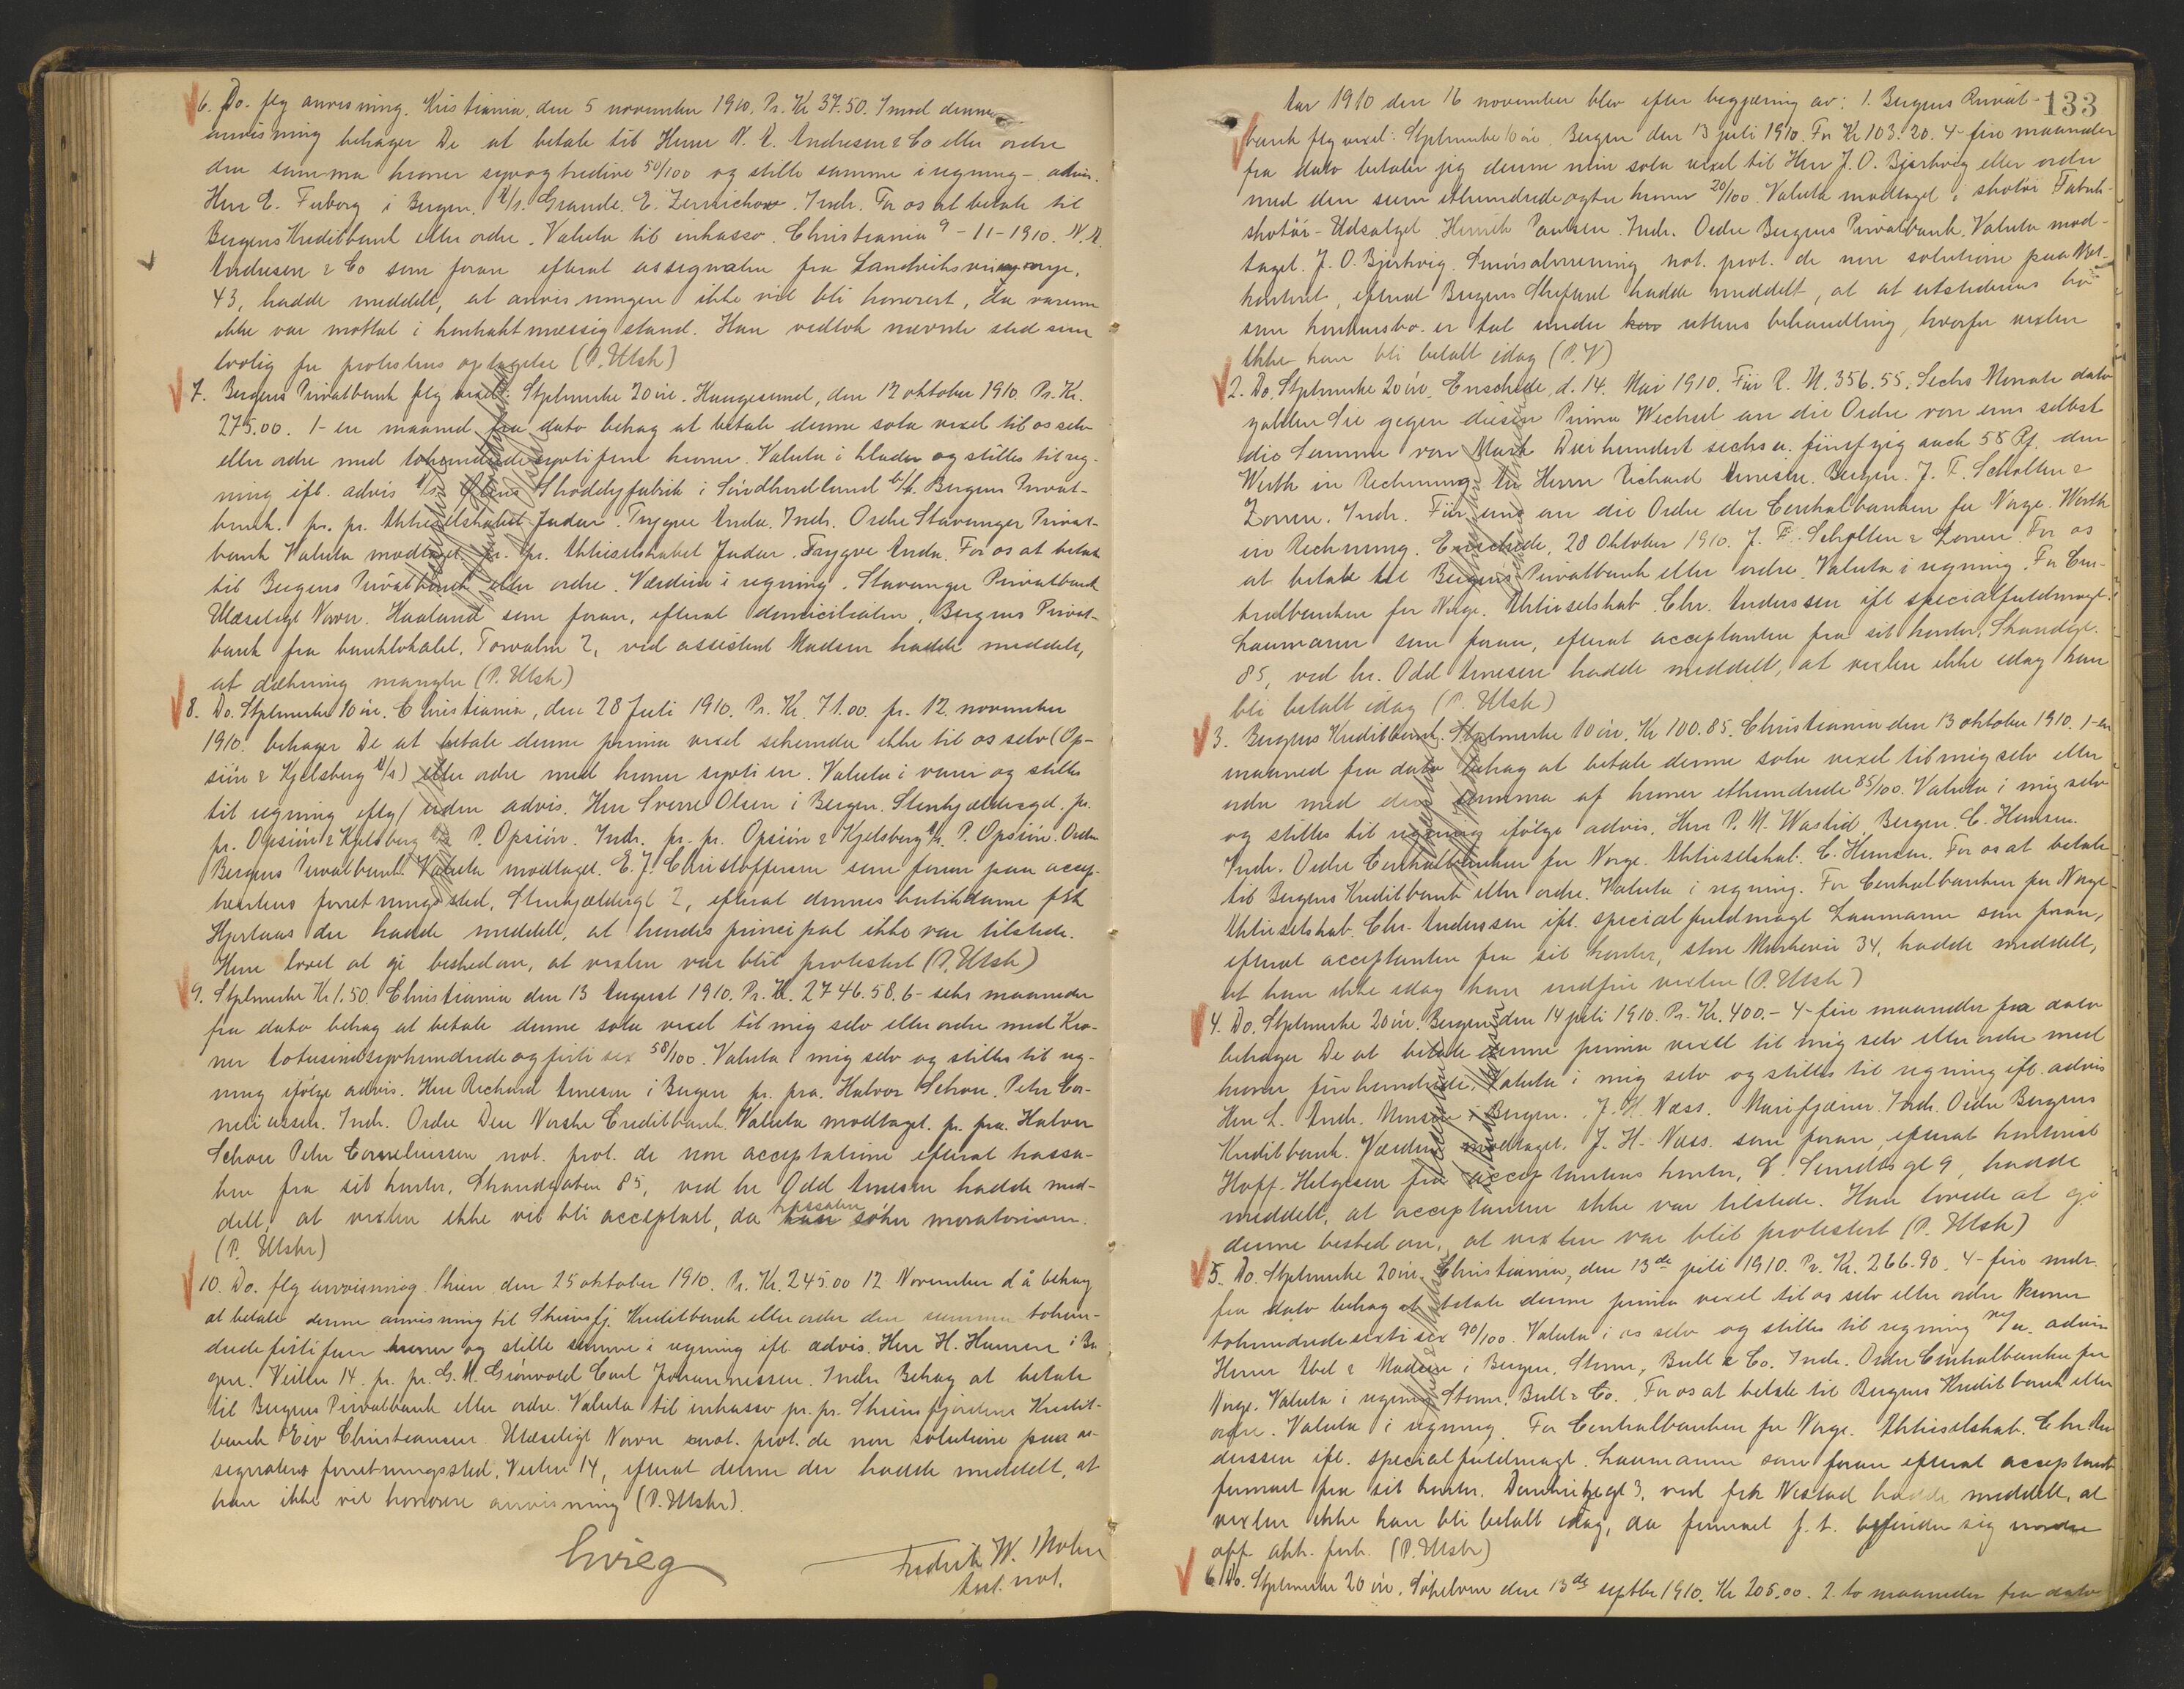 6. Do. flg anvisning. Kristiania, den 5 november 1910. Pr. Kr 37.50. Imod denne
anvisning behager De at betale til Herrer N. A. Andresen & Co eller ordre
den summa kroner syvogtredive 50/100 og stille samme i regning - advis.
Herr E. Forborg i Bergen. A/s. Grande. E. Zernichow. Indr. For os at betale til
Bergens Kreditbank eller ordre. Valuta til inkasso. Christiania 9-11-1910. N. A.
Andresen & Co som foran efterat assignaten fra Landeviksveien
43, hadde meddelt, at anvisningen ikke vil bli honorert, da varerne
ikke var mottat i kontraktmæssig stand. Han vedtok nævnte sted som
lovlig for protestens optagelse (P. Utsk)
7. Bergens Privatbank flg vexel: Stplmerke 20 øre. Haugesund, den 12 oktober 1910. Pr. Kr.
275.00. 1 - en maaned fra dato behag at betale denne sola vexel til os selv
eller ordre med tohundrede syvtifem kroner. Valuta i kluder og stilles til reg-
ning ifl. advis A/s. Shoddyfabrik i Søndhordland b/b. Bergens Privat-
bank. pr. pr. Aktieselskabet Jadar. Trygve Anda. Indr. Ordre Stavanger Privat-
bank Valuta modtaget pr. pr. Aktieselskabet Jadar. Trygve Anda. For os at betale
til Bergens Privatbank eller ordre. Værdien i regning. Stavanger Privatbank
Ulæseligt Navn. Haaland som foran, efterat domiciliaten, Bergens Privat-
bank fra banklokalet, Torvalm 2, ved assistent Madsen hadde meddelt,
at dækning mangler (P. Utsk)
8. Do. Stplmerke 10 øre. Christiania, den 28 Juli 1910. Pr. Kr. 71.00. pr. 12. november
1910. behager De at betale denne prima vexel sekunda ikke til os selv (Op-
siøn & Kjelsberg A/s) eller ordre med kroner sytti en. Valuta i varer og stilles
til regning eftg / uden advis. Herr Sverre Olsen i Bergen. Stenkjeldergd. pr.
pr. Opsiøn & Kjelsberg A/s P. Opsiøn. Indr. pr. pr. Opsiøn & Kjelsberg A/s. P. Opsiøn. Ordre
Bergens Privatbank. Valuta modtaget. E. J. Christoffersen som foran paa accep-
tantens forretningssted, Stenkjeldergt 2, efterat dennes butikdame frk
Hjertaas der hadde meddelt, at hendes principal ikke var tilstede.
Hun lovet at gi beskedom, at vexlen var blit protestert (P. Utsk)
9. Stplmerke Kr 1.50. Christiania den 13 August 1910. Pr. Kr. 2746.58. 6 - seks maaneder
fra dato behag at betale denne sola vexel til mig selv eller ordre med Kro-
ner totusindsyvhundrede og firti sex 58/100. Valuta i mig selv og stilles til reg-
ning ifølge advis. Herr Richard Arnesen i Bergen pr. pra. Halvor Schou. Peter Cor-
neliussen. Indr. Ordre Den Norske Creditbank. Valuta modtaget. pr. pra. Halvor
Schou Peter Corneliussen not. prot. de non acceptatione efterat trassa-
ten fra sit kontor, Strandgaten 85, ved hr Odd Arnesen hadde med-
delt, at vexlen ikke vil bli acceptert, da trassaten søker moratorium.
(P. Utskr)
10. Do. flg anvisning. Skien den 25 oktober 1910. Pr. Kr. 245.00 12 November d å behag
at betale denne anvisning til Skiensfj. Kreditbank eller ordre den summa tohun-
drede firtifem kroner og stille samme i regning ifl. advis. Herr H. Hansen i Ber
gen. Veiten 14. pr. pr. G. M. Grønvold Carl Johannessen. Indr. Behag at betale
til Bergens Privatbank eller ordre. Valuta til inkasso pr. pr. Skiensfjordens Kredit-
bank Eiv Christiansen. Ulæseligt Navn not. prot. de non solutione paa as-
signatens forretningssted, Veiten 14, efterat denne der hadde meddelt, at
han ikke vil honorere anvisning (P. Utskr).
Grieg
Fredrik W. Mohn
ast. not.
133
Aar 1910 den 16 november blev efter begjæring av: 1. Bergens Privat-
bank flg vexel: Stplmerke 10 øre. Bergen den 13 juli 1910. For Kr 103.20. 4 - fire maaneder
fra dato betaler jeg denne min sola vexel til Herr J. O. Bjørkvig eller ordre
med den sum ethundrede og tre kroner 20/100. Valuta modtaget i skotøi Fabrik-
skotøi-Udsalget Henrik Paulsen. Indr. Ordre Bergens Privatbank. Valuta mod-
taget. J. O. Bjørkvig. not. prot. de non solutione paa Not.
kontoret, efterat Bergens Skifteret hadde meddelt, at at utstederens bo
som konkursbo er tat under rettens behandling, hvorfor vexlen
ikke kan bli betalt idag (P. V)
2. Do. Stplmerke 20 øre. Enschede, d. 14. Mai 1910. Für R. M. 356.55. Sechs Monate dato
zahlen Sie gegen diesen Prima Wechsel an die Ordre von uns selbst
die Summe von Mark Dreihundert sechs u. fünfzig auch 55 Pf. den
Werth in Rechnung An Herrn Richard Arnesen. Bergen. J. F. Scholten &
Zonen. Indr. Für uns an die Ordre der Centralbanken for Norge. Werth
in Rechnung. Enschede, 28 Oktober 1910. J. F. Scholten & Zonen. For os
at betale til Bergens Privatbank eller ordre. Valuta i regning. For Cen-
tralbanken for Norge. Aktieselskab. Chr. Anderssen ifl specialfuldmagt.
Laumann som foran, efterat acceptanten fra sit kontor, Strandgt.
85, ved hr. Odd Arnesen hadde meddelt, at vexlen ikke idag kan
bli betalt idag (P. Utsk)
3. Bergens Kreditbank. Stplmerke 10 øre. Kr 100.85. Christiania den 13 oktober 1910. 1 - en
maaned fra dato behag at betale denne sola vexel til mig selv eller
ordre med den summa af kroner ethundrede 85/100. Valuta i mig selv
og stilles til regning ifølge advis. Herr P. M. Wastid, Bergen. C. Hansen.
Indr. Ordre Centralbanken for Norge. Aktieselskab. C. Hansen. For os at betale
til Bergens Kreditbank eller ordre. Valuta i regning. For Centralbanken for Norge
Aktieselskab. Chr. Anderssen ifl. specialfuldmagt Laumann som foran,
efterat acceptanten fra sit kontor, store Markevei 34, hadde meddelt,
at han ikke idag kan indfrie vexlen (P. Utsk)
4. Do. Stplmerke 20 øre. Bergen den 14 juli 1910. Pr. Kr. 400.- 4 - fire maaneder fra dato
behager De at betale denne prima vexel til mig selv eller ordre med
kroner firehundrede. Valuta i mig selv og stilles til regning ifl. advis
Herr L. Andr. Monsen i Bergen. J. H. Næss. Marifjæren. Indr. Ordre Bergens
Kreditbank. Værdien modtaget. J. H. Næss. som foran, efterat kontorist
Hoff-Helgesen fra acceptantens kontor, E. Sundts gt 9, hadde
meddelt, at acceptanten ikke var tilstede. Han lovede at gi
denne beskedom, at vexlen var blit protestert (P. Utsk)
5. Do. Stplmerke 20 øre. Christiania, den 13de juli 1910. Pr. Kr. 266.90. 4 - fire mdr.
fra dato behag at betale denne prima vexel til os selv eller ordre kroner
tohundredesexti sex 90/100. Valuta i os selv og stilles til regning m/u. advis
Herrer Abel & Madsen i Bergen. Storm, Bull & Co. Indr. Ordre Centralbanken for
Norge. Valuta i regning Storm, Bull & Co. For os at betale til Bergens Kreditbank eller
ordre. Valuta i regning. For Centralbanken for Norge. Aktieselskab. Chr. An
derssen ifl. specialfuldmagt. Laumann som foran efterat acceptant
firmaet fra sit kontor. gt 3, ved frk Nestad hadde meddelt, at
vexlen ikke kan bli betalt idag, da firmaet f. t. befinder sig under
off. akk. forh. (P. Utskr)
6. Do. Stplmerke 20 øre. den 13de septbr 1910. Kr 205.00. 2. to maaneder fra dato